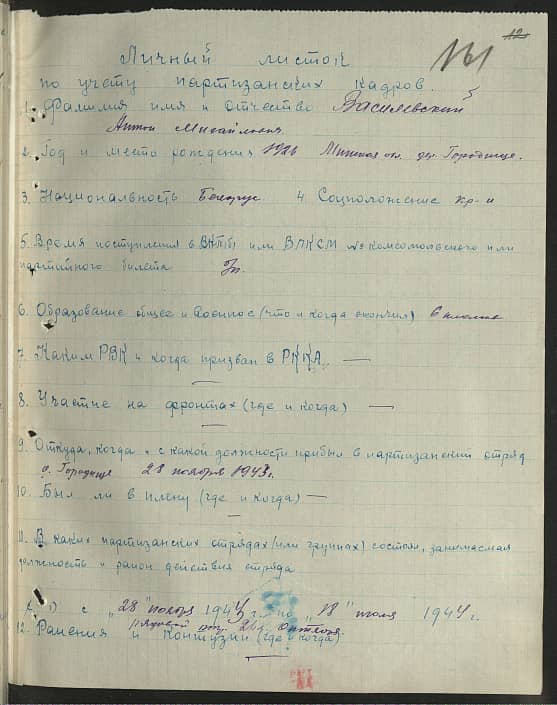 12
Личный листок
по учету партизанских кадров.
1. Фамилия имя и отчество Василевский
Антон Михайлович
2. Год и место рождения 1926 Минская обл. дер. Городище.
3. Национальность Белорус 4 Соцположение кр-н
5. Время поступления в ВКПб или ВЛКСМ № комсомольского или
партийного билета
6. Образование общее и военное (что и когда окончил) 6 классов
7. Каким РВК и когда призван в РККА —
8. Участие на фронтах (где и когда) —
9. Откуда, когда и с какой должности прибыл в партизанский отряд
д. Городище 28 ноября 1943 г.
10. Был ли в плену (где и когда) —
11. В каких партизанских отрядах (или группах) состоял, занимаемая
должность и район действия отряда
с „28" ноября 1943 г. по „18" июля 1944 г.
рядовой Октября.
12. Ранения и контузии (где и когда)